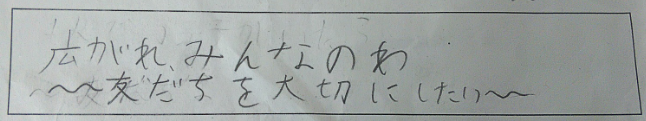 広がれ、みんなのわ
～～友だちを大切にしたい～～